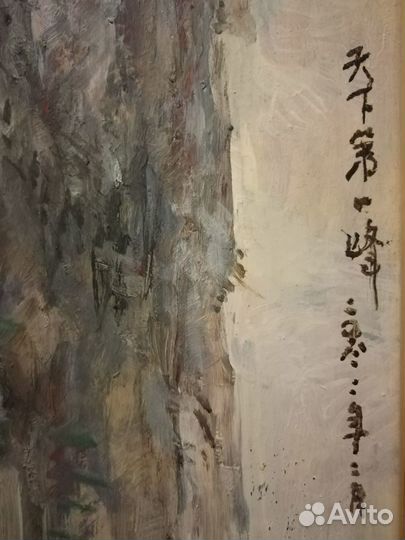 天下第一峰 二零二二年二月
Avito